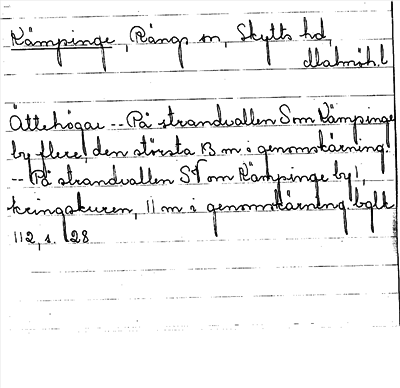 Kämpinge, Rängs sn, Skytts hd,
Malmöh. l
Ättehögar -- På strandvallen S om Kämpinge
by flere, den största 13 m i genomskärning!
-- På strandvallen SV om Kämpinge by!,
kringskuren, 11 m i genomskärning! bglk
112, s. 128